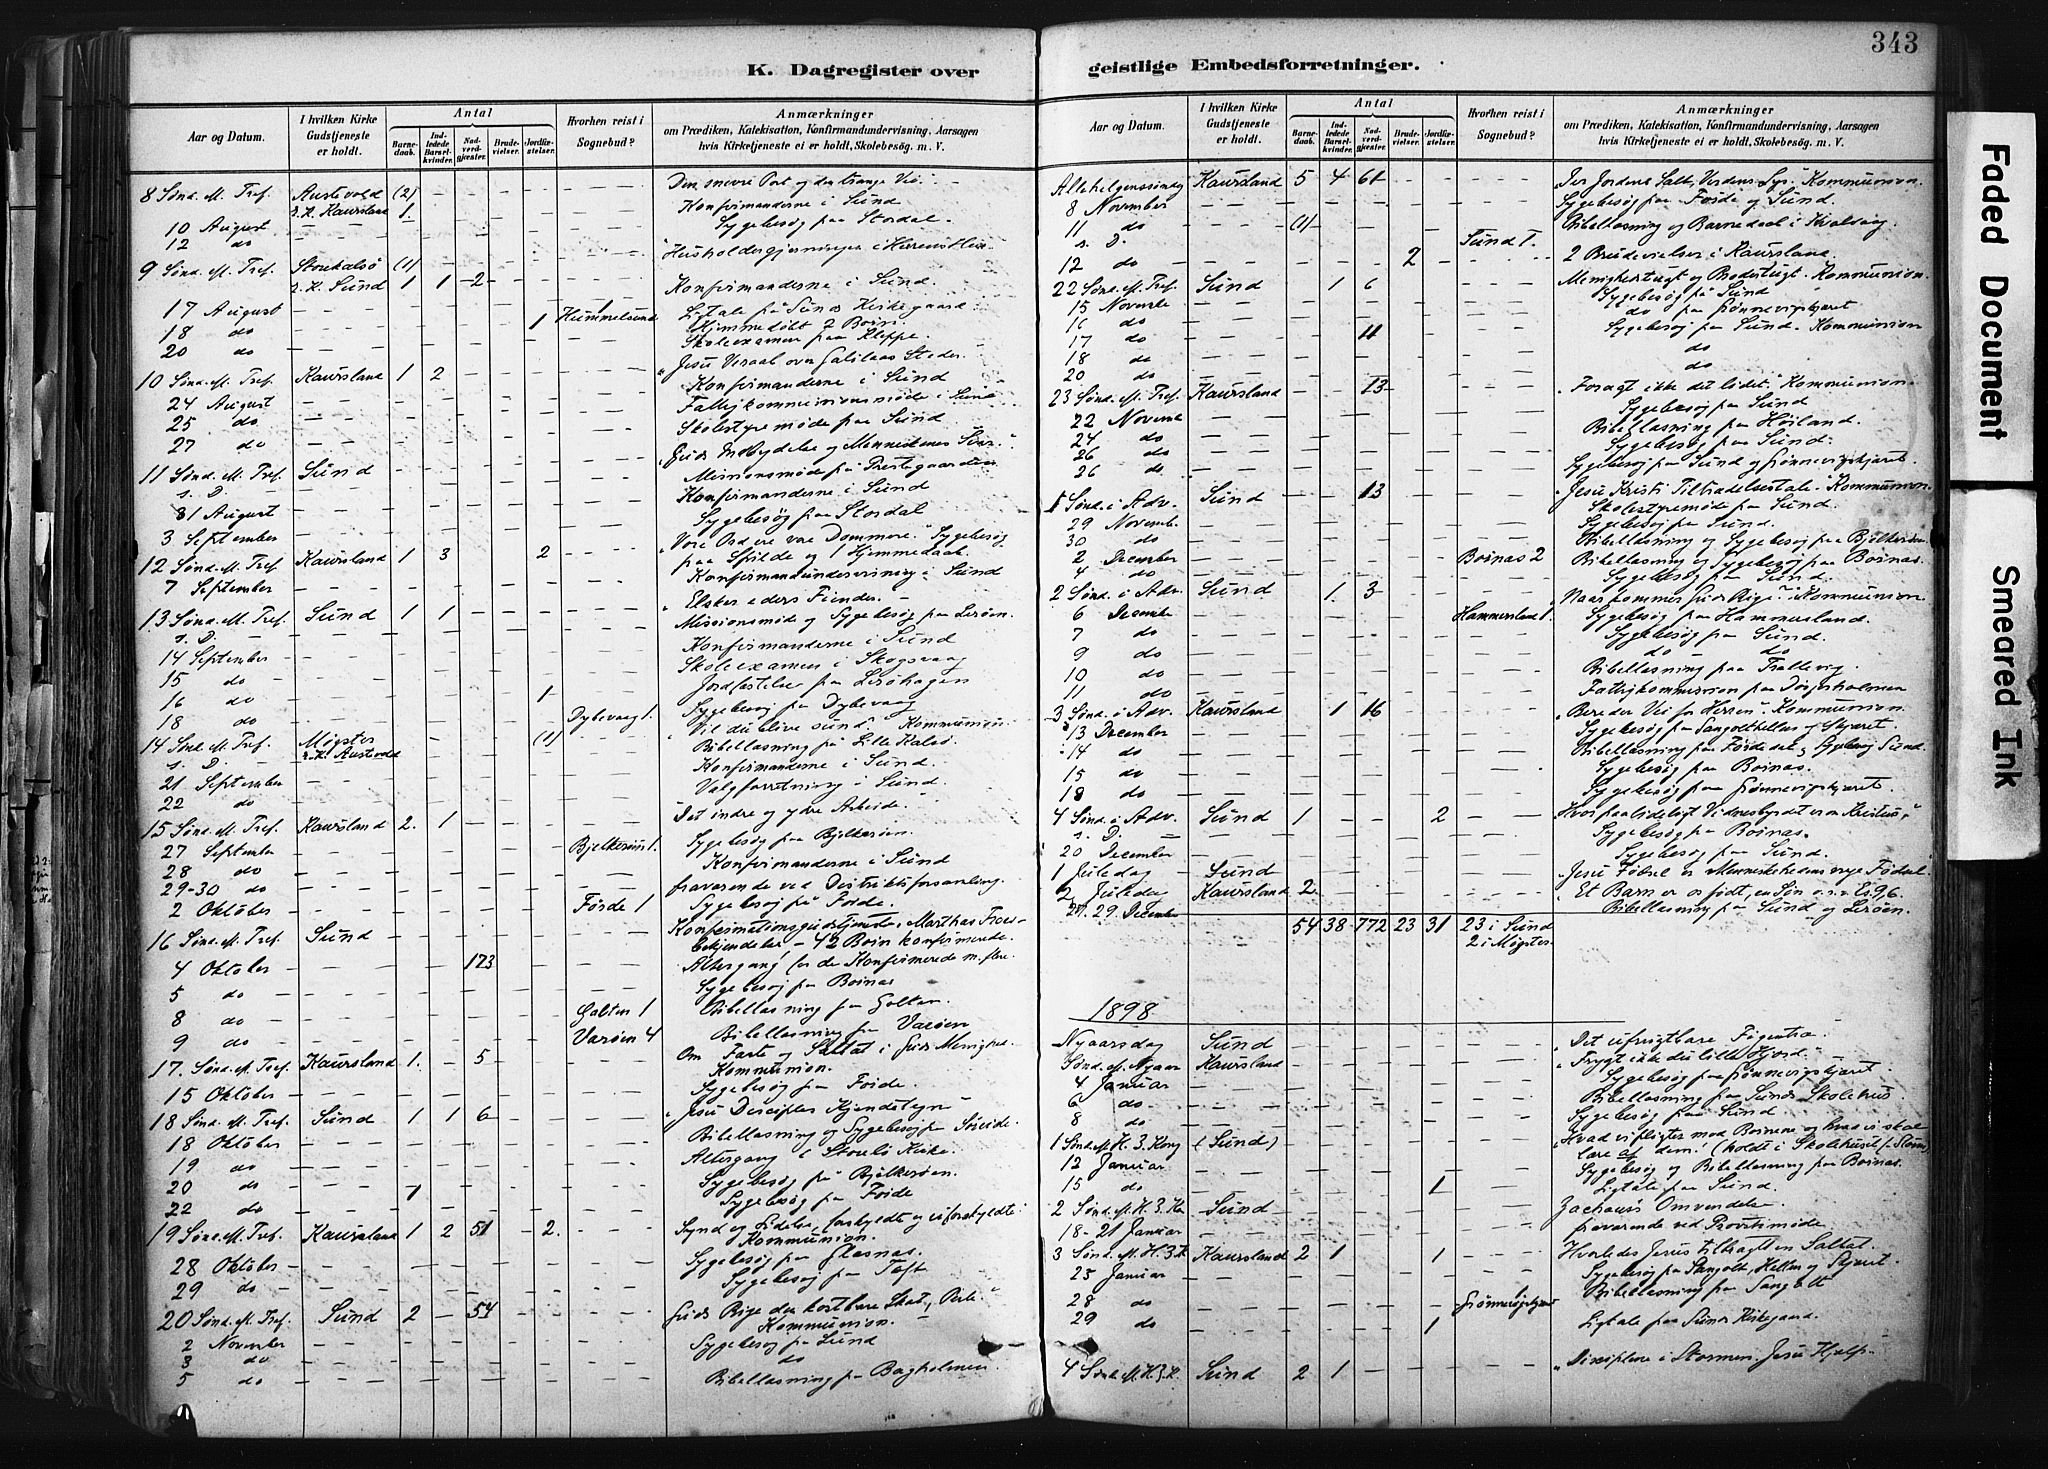 343
K. Dagregister over
Aar og Datum.
I hvilken Kirke Gudstjeneste er holdt.
Antal
Barnedaab.
Indledede Barselkvinder.
Nadverdgjester.
Brudevielser.
Jordfæstelser.
Hvorhen reist i Sognebud?
Anmærkninger
om Prædiken, Katekisation, Konfirmandundervisning, Aarsagen
hvis Kirketjeneste ei er holdt, Skolebesøg. m. V.
8 Sønd. M. Tref. Austevold (2) Den snevre Port og den trange Vei.
s. K. Kaursland 1. Konfirmanderne i Sund
10 August Sygebesøg paa Stordal.
12 do Husholdergjerningen i Herrens
9 Sønd. M. Tref. Storekalsø (1)
s. K. Sund 1 1 2 Konfirmanderne i Sund.
17 August 1 Hummelsund Ligtale på Sunds Kirkegaard
18 do Hjemmedøbt 2 Børn.
20 do Skoleexamen paa Kleppe.
10 Sønd. M. Tref. Kaursland 1 2 Jesu Veraab over Galilæas Stæder.
24 August Konfirmanderne i Sund
25 do Fattigkommissionsmøde i Sund
27 do Skolestyremøde paa Sund
11 Sønd. M. Tref. Sund Guds Indbydelse og Menneskenes
s. D. Missionsmøde på Prestegaarden
31 August Konfirmanderne i Sund
3 September Sygebesøg paa Stordal
12 Sønd. M. Tref. Kaursland 1 3 2 Vore Ord ere vore Dommere. Sygebesøg
paa Spilde og 1 Hjemmedaab
7 September Konfirmandundervisning i Sund
13 Sønd. M. Tref. Sund 1 1 Elsker eders Fiender.
s. D. Missionsmøde og Sygebesøg paa Lerøen.
14 September Konfirmanderne i Sund
15 do Skoleexamen i Skogsvaag
16 do 1 Jordfæstelse paa Lerøhagen
18 do Dybevaag 1. Sygebesøg paa Dybevaag
14 Sønd. M. Tref. Møgster (1) Vil du blive sund Kommunion.
s. D. s. K. Austevold Bibellæsning på Lille Kalsø.
21 September Konfirmanderne i Sund.
22 do Valgforretning i Sund.
15 Sønd. M. Tref. Kaursland 2. 1 Det indre og ydre Arbeide.
27 September Bjelkerøen 1. Sygebesøg paa Bjelkerøen.
28 do Konfirmanderne i Sund
29-30 do fraværende ved Distriktsforsamling.
2 Oktober Førde 1 Sygebesøg på Førde.
16 Sønd. M. Tref. Sund Konfirmationsgudstjeneste, Marthas Troes-
bekjendelse, - 42 Børn konfirmerede.
4 Oktober 173 Altergang for de Konfirmerede m. flere.
5 do Sygebesøg paa Børnæs
8 do Golten 1 Bibellæsning paa Golten.
9 do Varøen 4 Bibellæsning paa Varøen
17. Sønd. M. Tref. Kaursland 1. 5 Om Faste og Sabbat i Guds Menighed.
Kommunion.
15 Oktober Sygebesøg paa Førde.
18 Sønd. M. Tref. Sund 1 1 6 Jesu Disciples Kjendetegn
18 Oktober Bibellæsning og Sygebesøg paa
19 do Altergang i Storelø Kirke.
20 do 1 Sygebesøg paa Bjelkerøen.
22 do Sygebesøg paa Førde
19 Sønd. M. Tref. Kaursland 1 2 51 2. Synd og Lidelse, forskyldte og uforskyldte.
Kommunion.
28 Oktober Sygebesøg paa Glesnæs.
29 do Sygebesøg paa Toft
20 Sønd. M. Tref. Sund 2 54 Guds Rige den kostbare Skat, Perle.
Kommunion.
2 November Sygebesøg paa Sund
3 do do
5 do Bibellæsning paa Bagholmen.
geistlige Embedsforretninger.
Aar og Datum.
I hvilken Kirke Gudstjeneste er holdt.
Antal
Barnedaab.
Indledede Barselkvinder.
Nadverdgjester.
Brudevielser.
Jordfæstelser.
Hvorhen reist i Sognebud?
Anmærkninger
om Prædiken, Katekisation, Konfirmandundervisning, Aarsagen
hvis Kirketjeneste ei er holdt, Skolebesøg. m. V.
Allehelgenssøndag Kaursland 5 4 61 Jer Jordens Salt, Verdens Lys. Kommunion.
8 November Sygebesøg paa Førde og Sund.
11 do (1) Bibellæsning og Barnedaab i
s. D. Sund 1.
12 do 2 2 Brudevielser i Kaursland.
22 Sønd. M. Tref. Sund 1 6 Menighedstugt og Brodertugt. Kommunion.
15 Novembr Sygebesøg på Sund
16 do do paa Grønnevigskjæret.
17 do 11 Sygebesøg paa Sund. Kommunion
18 do do
20 do do
23 Sønd. M. Tref. Kaursland 13 Foragt ikke det lidet. Kommunion.
22 Novemb Sygebesøg paa Sund
24 do Bibellæsning paa Høiland.
26 do Sygebesøg paa Sund.
26 do Sygebesøg paa Sund og Grønnevigskjæret.
1 Sønd. i Adv. Sund 13 Jesu Kristi Tiltrædelsestale. Kommunion.
29 Novemb Skolestyremøde paa Sund.
30 do Sygebesøg paa Sund.
2 December Bibellæsning og Sygebesøg paa Bjelkerøen
4 do Børnæs 2 Bibellæsning og Sygebesøg paa Børnæs.
Sygebesøg paa Sund.
2 Sønd. i Adv. Sund 1 3 Naar kommer Guds Rige? Kommunion.
6 December Hammersland 1. Sygebesøg paa Hammersland.
7 do Sygebesøg paa Sund.
9 do do do
10 do Bibellæsning paa Trællevig.
11 do Fattigkommission paa
3 Sønd. i Adv. Kaursland 1 16 Bereder Vei for Herren. Kommunion.
13 December Sygebesøg paa Sangolthellen og Skjæret.
14 do Bibellæsning paa Førde og Sygebesøg Sund.
15 do Sygebesøg paa Børnæs.
18 do Sygebesøg paa Grønnevigskjæret.
4 Sønd. i Adv. Sund 1 2 Hvor paalideligt Vidnesbyrdet er om Kristus.
s. D. Sygebesøg paa Børnæs.
20 December Sygebesøg paa Sund.
1 Juledag Sund Jesu Fødsel er Menneskehedens nye Fødsel
2 Juledag Kaursland 2. Et Barn er os født, en Søn o.s.v. Es 9,6.
29 December Bibellæsning paa Sund og Lerøen.
54 38 772 23 31 23 i Sund
2 i Møgster
1898
Nyaarsdag Sund Det ufrugtbare Figentræ.
Sønd. M. Nyaar Kaursland Frygt ikke du lille Hjord.
4 Januar Sygebesøg paa Grønnevigskjæret
6 do Bibellæsning paa Sunds Skolehus.
8 do Sygebesøg paa Sund.
1 Sønd. M. H. 3. Kong (Sund) Hvad vi pligter mod Børnene og hvad vi skal
lære af dem. (holdt i Skolehuset
12 Januar Sygebesøg og Bibellæsning paa Børnæs.
15 do 1 Ligtale paa Sund.
2 Sønd. M. H. 3. K. Sund Zachæus Omvendelse
18-21 Januar fraværende ved Provstimøde
3 Sønd. M. H. 3. K. Kaursland 2 1 1 Hvorledes Jesus tilbragte en Sabbat.
25 Januar Sygebesøg paa Sangolt, Hellen og Skjæret.
28 do Grønnevigskjæret Bibellæsning paa Sangolt
29 do 1 Ligtale paa Sunds Kirkegaard.
4 Sønd. M. H. 3. K. Sund 2 1 Disciplene i Stormen, Jesu Hjælp.
Faded Document
Smeared Ink